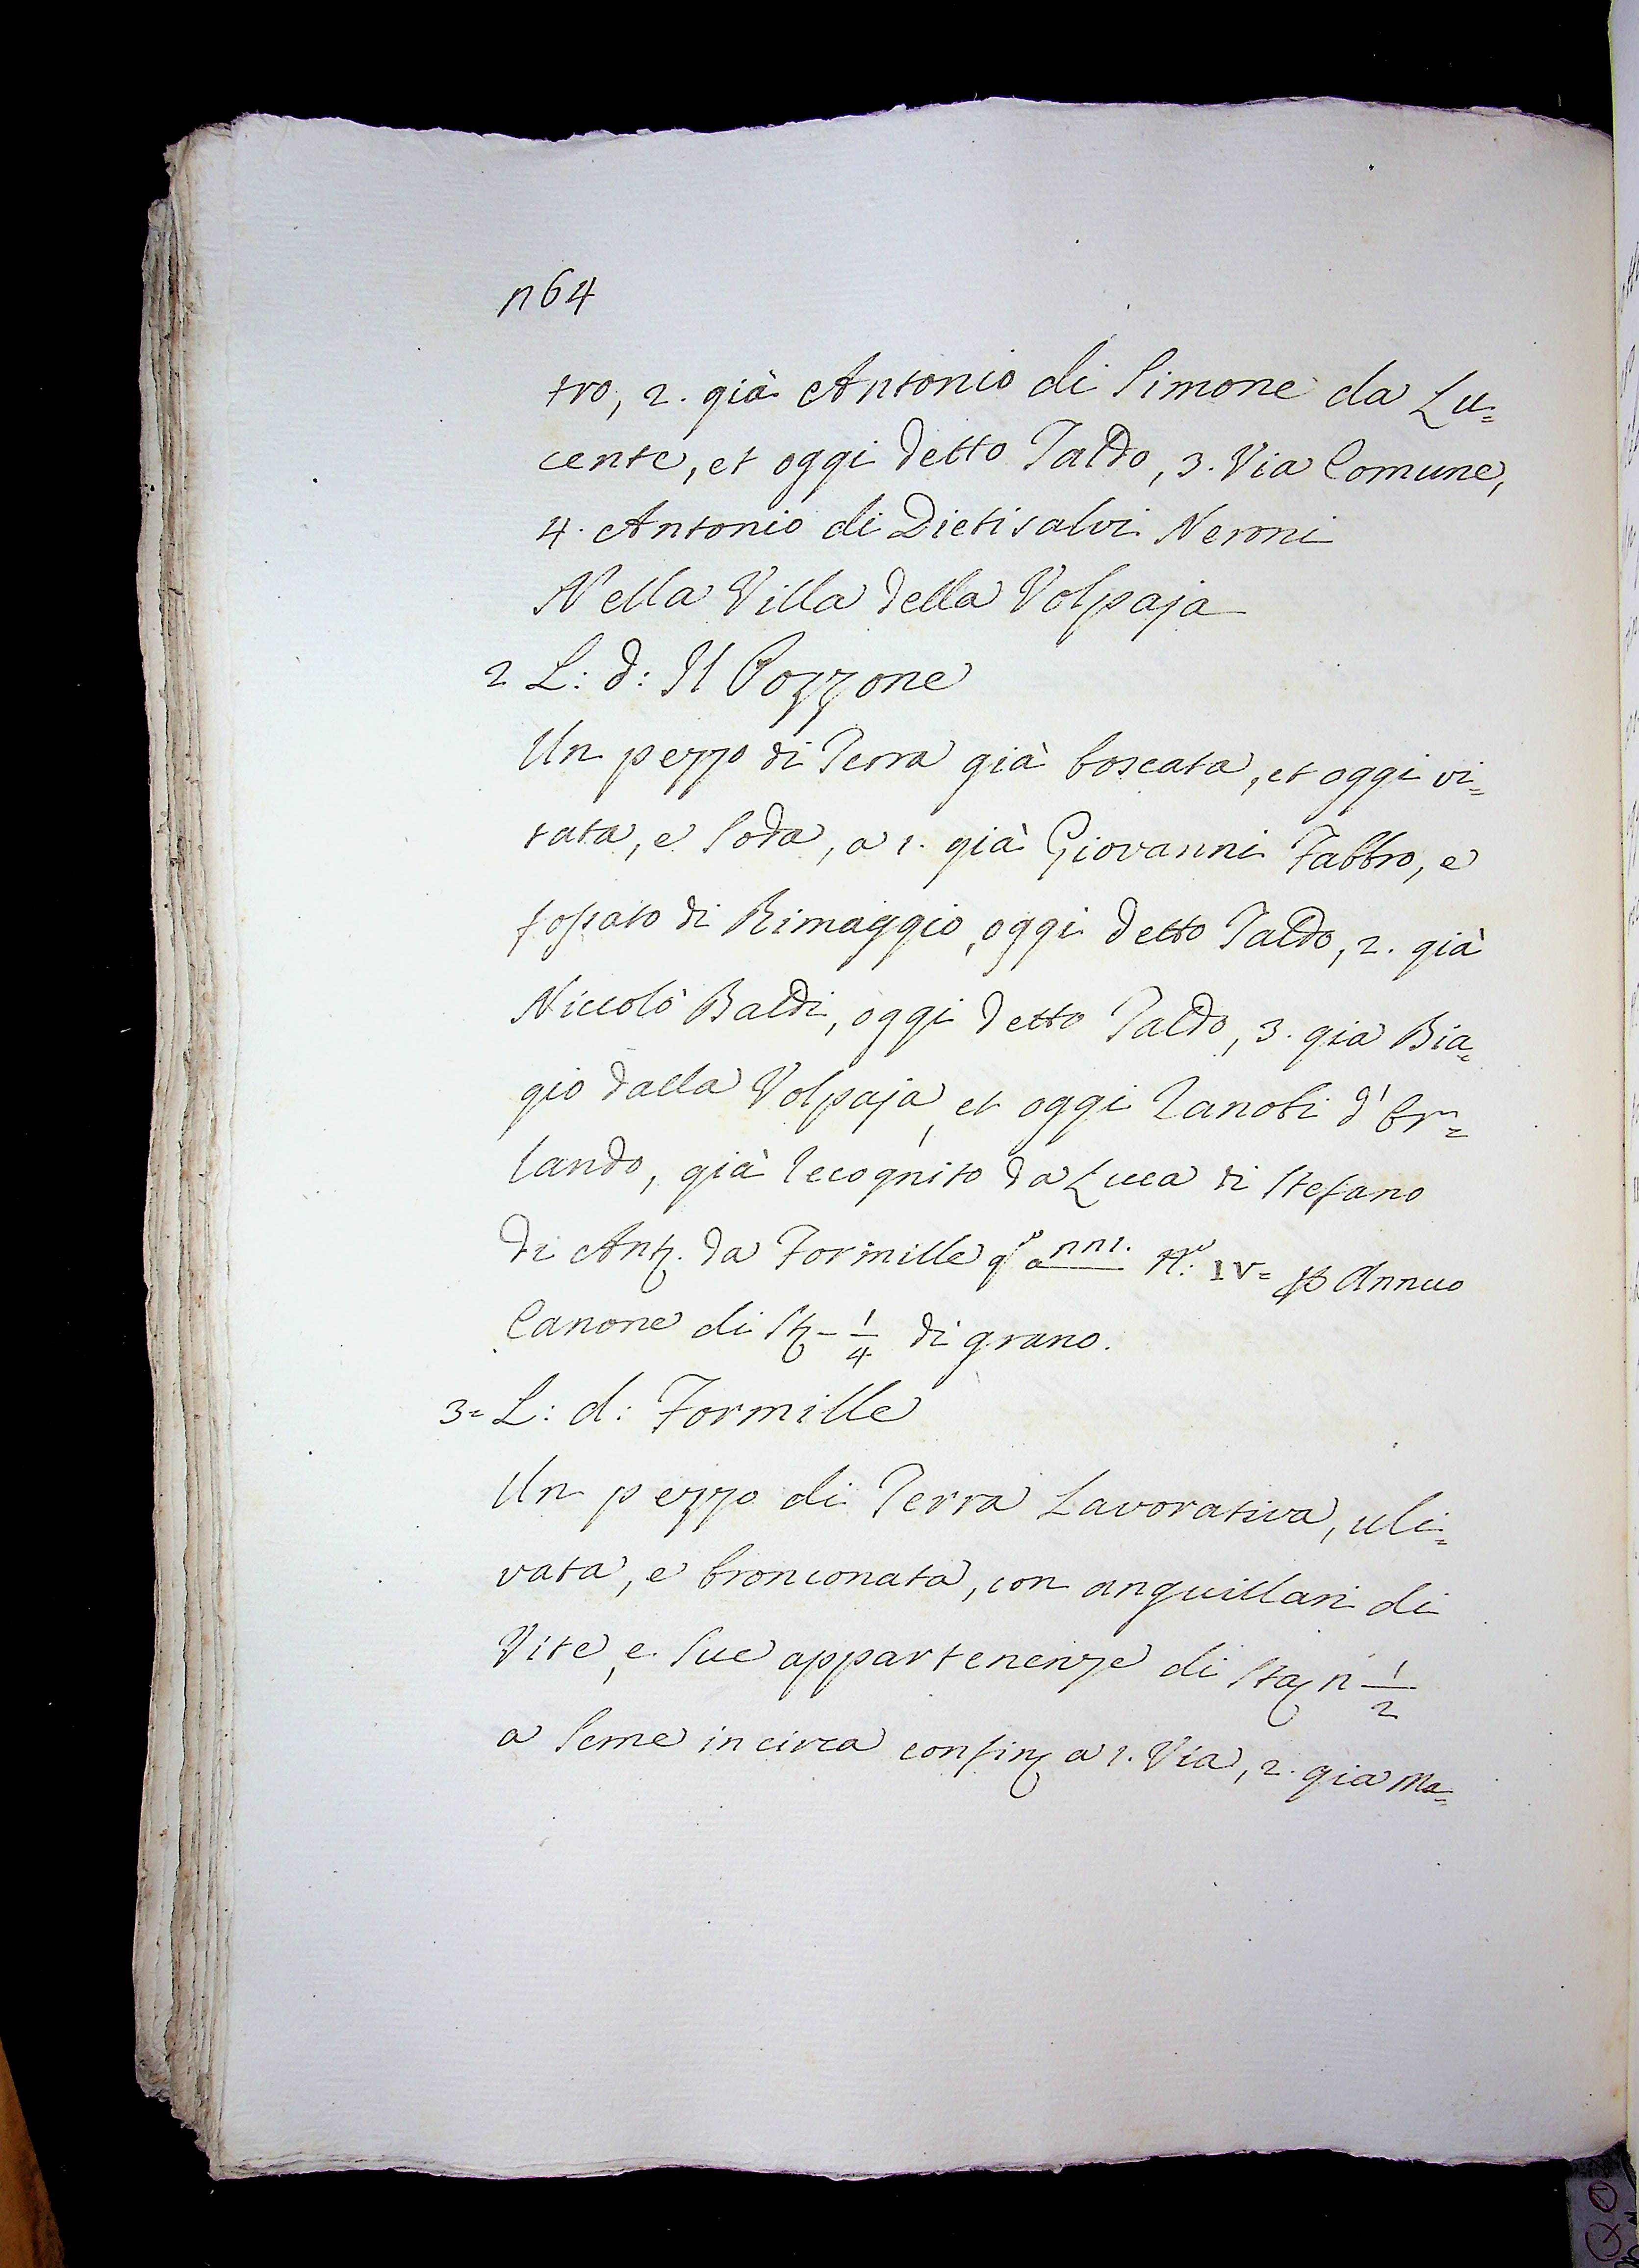 n64
tro, 2. già Antonio di Simone da Lu=
cente, et oggi detto Taldo, 3. Via Comune,
4. Antonio di Dietisalvi Neroni
Nella Villa della Volpaja
2 L: d: Il Pozzone
Un pezzo di Terra già boscata, et oggi vi=
tata, e Soda, a 1. già Giovanni Fabbro, e
fossato di Rimaggio, oggi detto Taldo, 2. già
Niccolò Baldi, oggi detto Taldo, 3. gia Bia=
gio dalla Volpaja, et oggi Zanobi d'Or=
lando, già recognito da Luca di Stefano
di Ant. da Formille N.º IV= Annuo
Canone di St - 1/4 di grano.
3= L: d: Formille
Un pezzo di Terra Lavorativa, uli=
vata, e bronconata, con anguillari di
Vite, e Sue appartenenze di Sta n 1/2
a Seme in circa confin a 1. Via, 2. gia Ma=